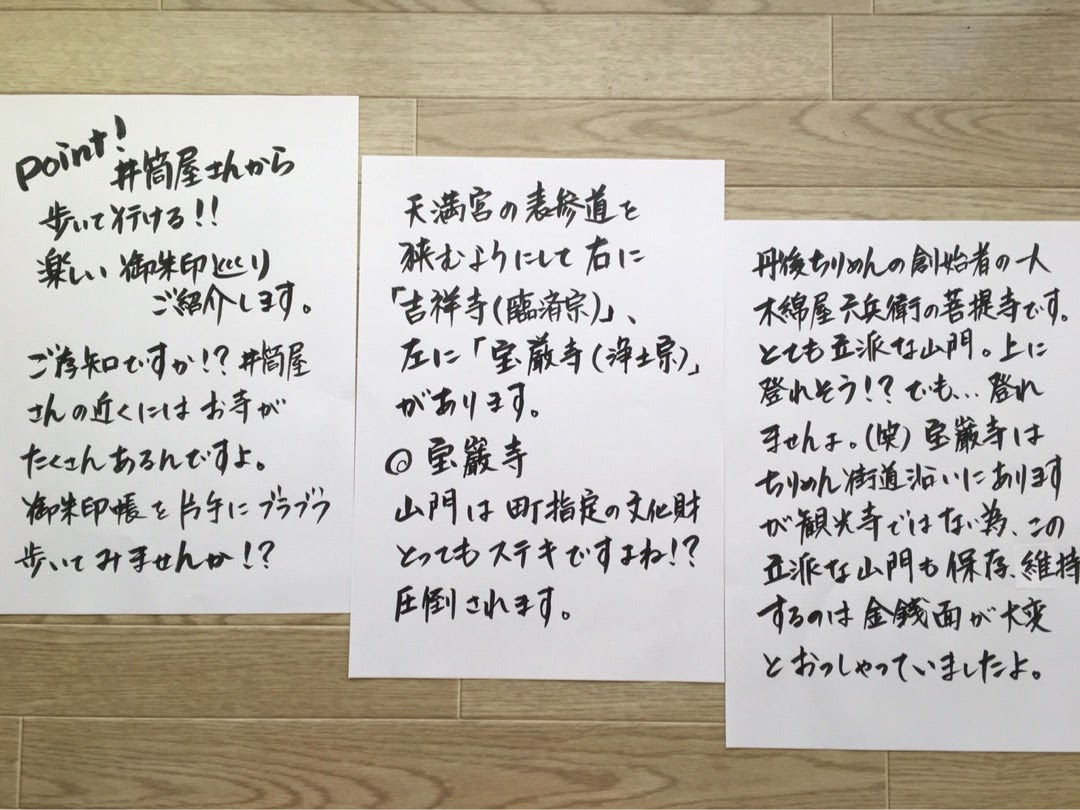 Point!
井筒屋さんから
歩いて行ける!!
楽しい御朱印巡り
ご紹介します。
ご存知ですか!?井筒屋
さんの近くにはお寺が
たくさんあるんですよ。
御朱印帳を片手にブラブラ
歩いてみませんか!?
天満宮の表参道を
狭むようにして右に
「吉祥寺(臨済宗)」、
左に「宝厳寺(浄土宗)」
があります。
◎宝巌寺
山門は町指定の文化財
とってもステキですよね!?
圧倒されます。
丹後ちりめんの創始者の一人
木綿屋六兵衛の菩提寺です。
とても立派な山門。上に
登れそう!?でも…登れ
ませんよ。(笑)宝巌寺は
ちりめん街道沿いにあります
が観光寺ではない為、この
立派な山門も保存、維持
するのは金銭面が大変
とおっしゃっていましたよ。